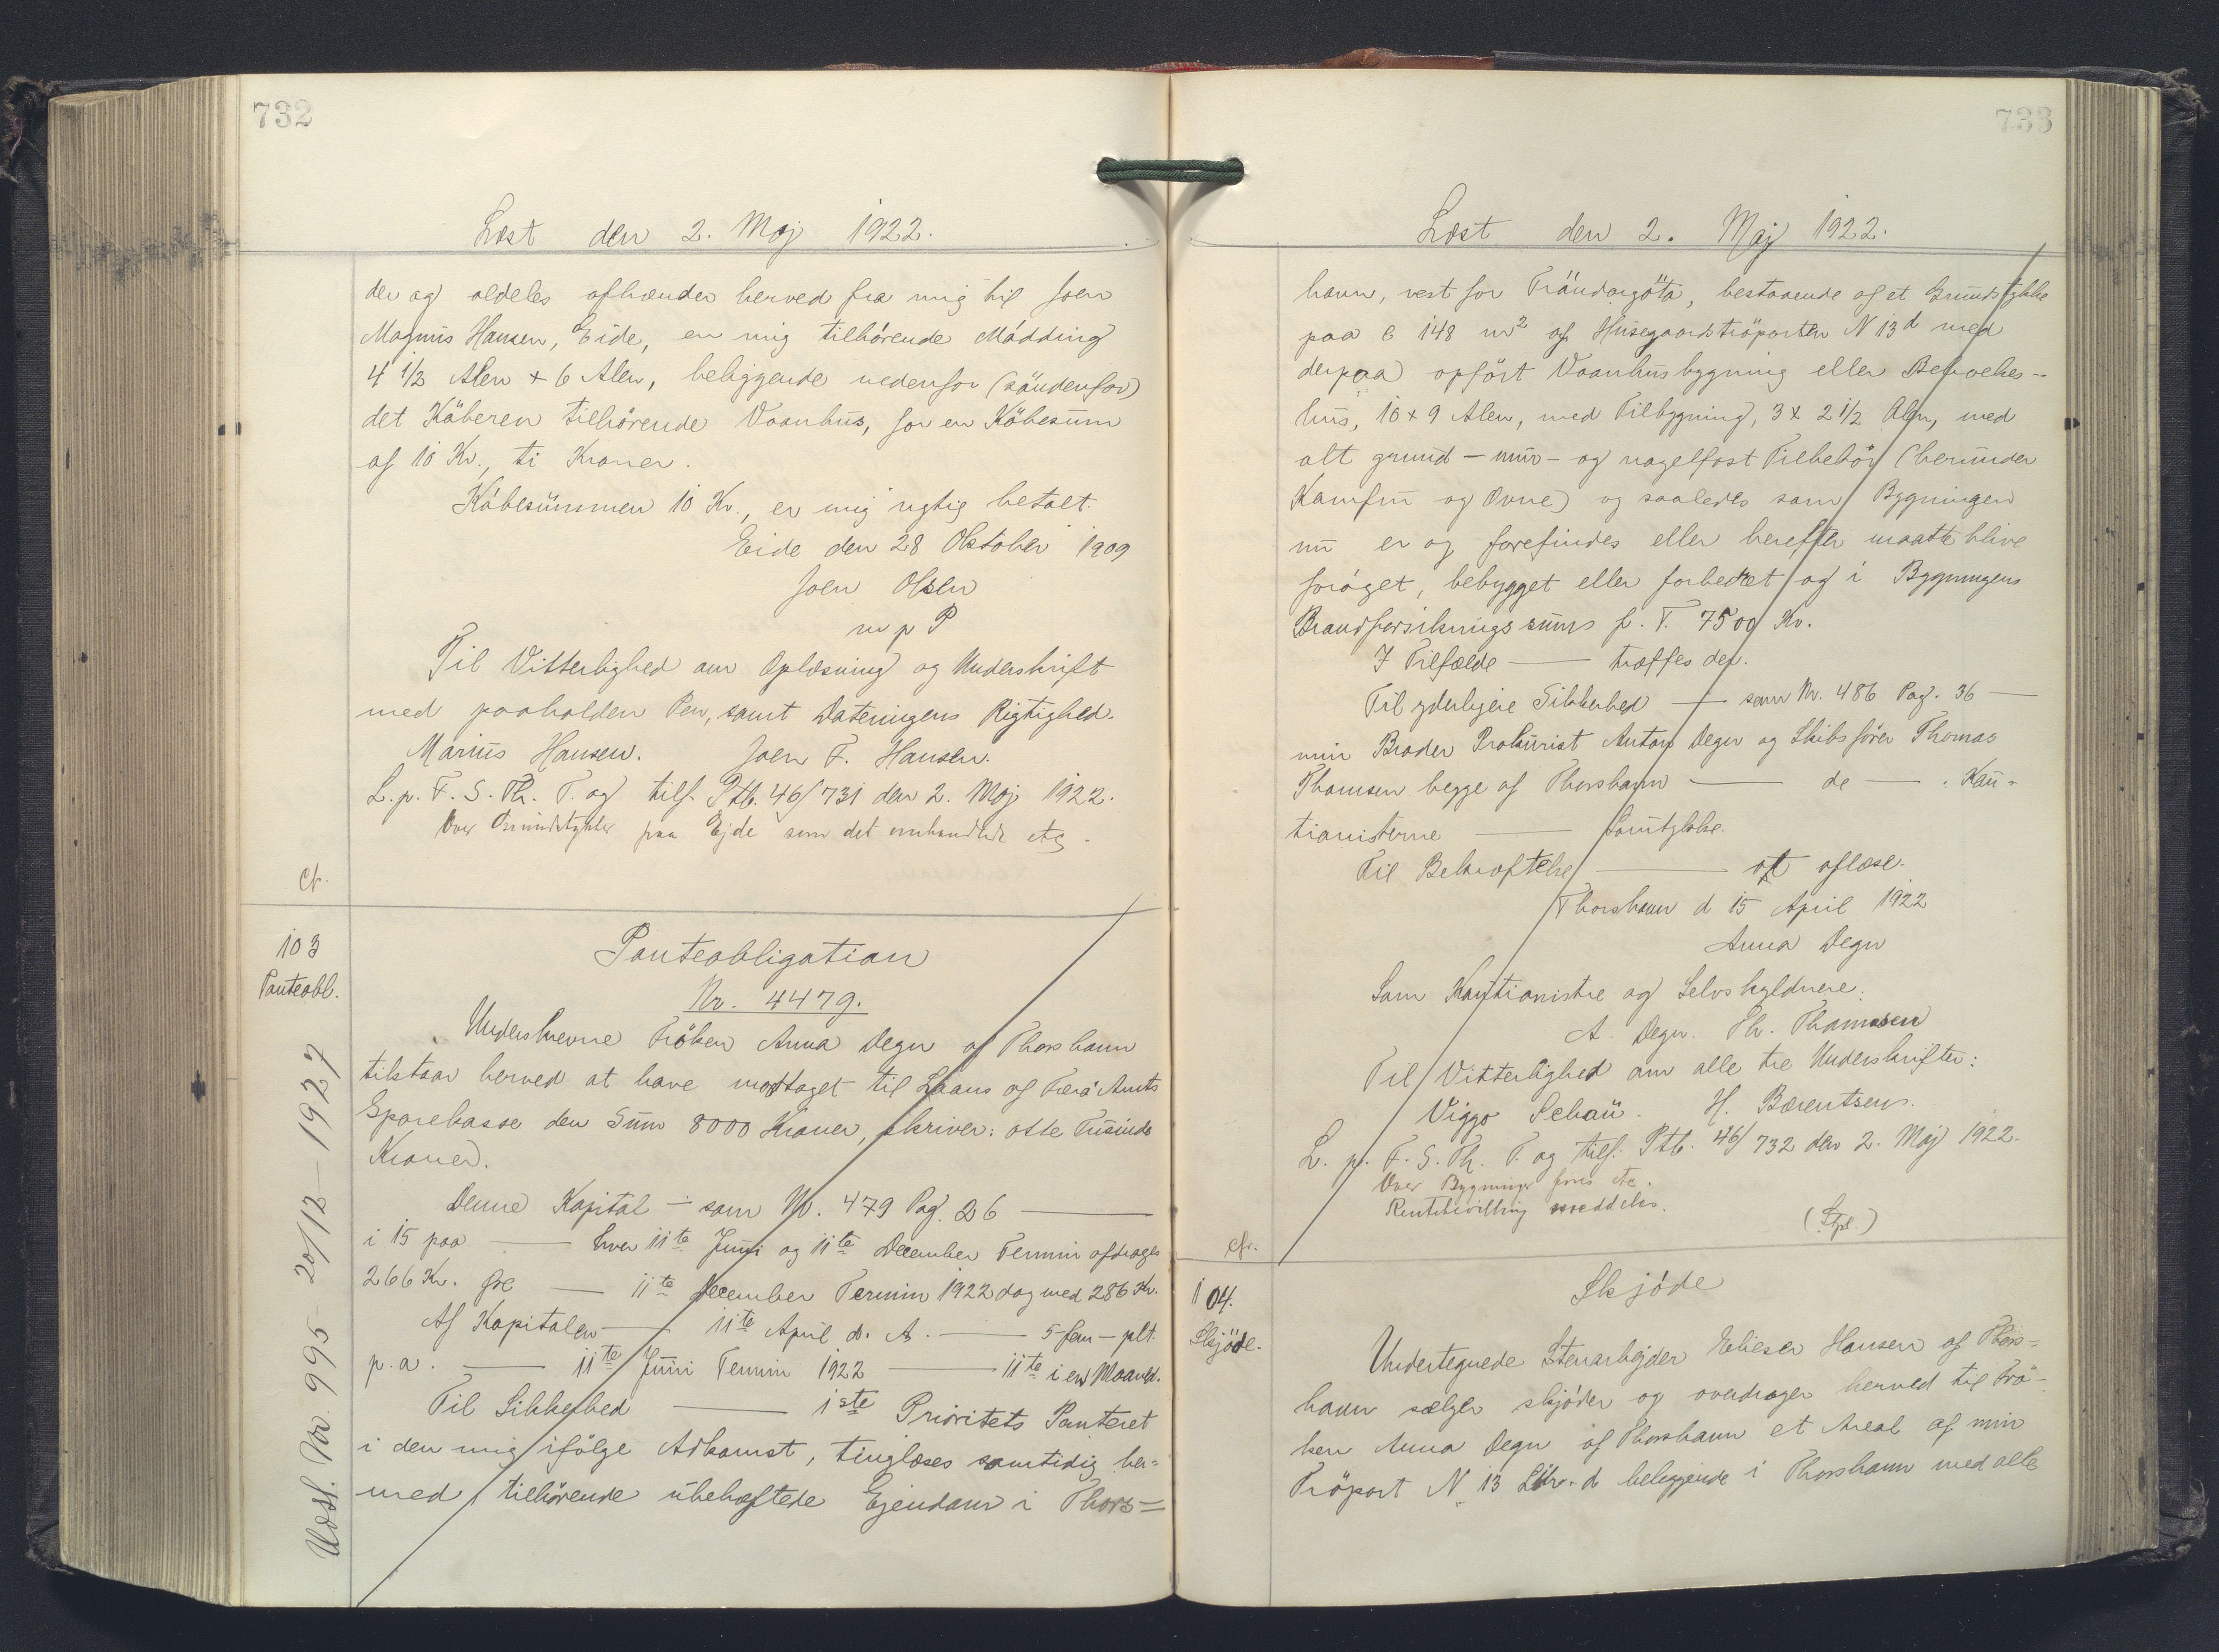 732
Læst den 2. Maj 1922.
der og aldeles afhænder herved fra mig til Joen
Magnus Hansen, Eide, en mig tilhørende Mødding
4 1/2 Alen + 6 Alen, beliggende nedenfor (søndenfor)
det Køberen tilhørende Vaanhus, for en Købesum
af 10 Kr., ti Kroner.
Købesummen 10 Kr., er mig rigtig betalt.
Eide den 28 Oktober 1909
Joen Olsen
m p P
Til Vitterlighed om Oplæsning og Underskrift
med paaholden Pen, samt Dateringens Rigtighed.
Marius Hansen. Joen F. Hansen.
L. p. F. S. Th. T. og tilf. Ptb. 46/731 den 2. Maj 1922.
Over Grundstykker paa Ejde som det omhandlede etc.
cfr.
103
Panteobl.
Udsl. Nr. 995 20/12 - 1927
Panteobligation
Nr. 4479.
Underskrevne Frøken Anna Degn af Thorshavn
tilstaar herved at have modtaget til Laans af Færø Amts
Sparekasse den Sum 8000 Kroner, skriver: otte Tusinde
Kroner.
Denne Kapital — som Nr. 479 Pag. 26 —
i 15 paa — hver 11te Juni og 11te December Termin afdrages
266 Kr. — 11te December Termin 1922 dog med 286 Kr.
Af Kapitalen — 11te April d. A. — 5 fem — pCt.
p. a. — 11te Juni Termin 1922 — 11te i en Maaned.
Til Sikkerhed — 1ste Prioritets Panteret
i den mig ifølge Adkomst, tinglæses samtidig her=
med tilhørende ubehæftede Ejendom i Thors=
733
Læst den 2. Maj 1922.
havn, vest for Tröndargøta, bestaaende af et Grundstykke
paa c 148 m² af Husegaardstrøparten N 13d med
derpaa opført Vaanhusbygning eller Beboelses-
hus, 10 + 9 Alen, med Tilbygning, 3 x 2 1/2 Alen, med
alt grund- mur- og nagelfast Tilbehør (herunder
Komfur og Ovne) og saaledes som Bygningen
nu er og forefindes eller herefter maatte blive
forøget, bebygget eller forbedret og i Bygningens
Brandforsikringssum p. T. 7500 Kr.
I Tilfælde — træffes der.
Til yderligere Sikkerhed — som Nr. 486 Pag. 36 —
min Broder Prokurist Anton Degn og Skibsfører Thomas
Thomsen begge af Thorshavn — de — Kau-
tionisterne — Samtykke.
Til Bekræftelse — at aflæse.
Thorshavn d 15 April 1922
Anna Degn
Som Kautionister og Selvskyldnere:
A. Degn. Th. Thomsen
Til Vitterlighed om alle tre Underskrifter:
Viggo Schau. H. Bærentsen.
L. p. F. S. Th. T. og tilf. Ptb. 46/732 den 2. Maj 1922.
Over Bygninger etc.
Rentebevilling meddeles.
(Stpl.)
cfr.
104.
Skjøde.
Skjøde
Undertegnede Stenarbejder Elieser Hansen af Thors=
havn sælger skjøder og overdrager herved til Frø-
ken Anna Degn af Thorshavn et Areal af min
Trøpart N 13 Litr. d beliggende i Thorshavn med alle